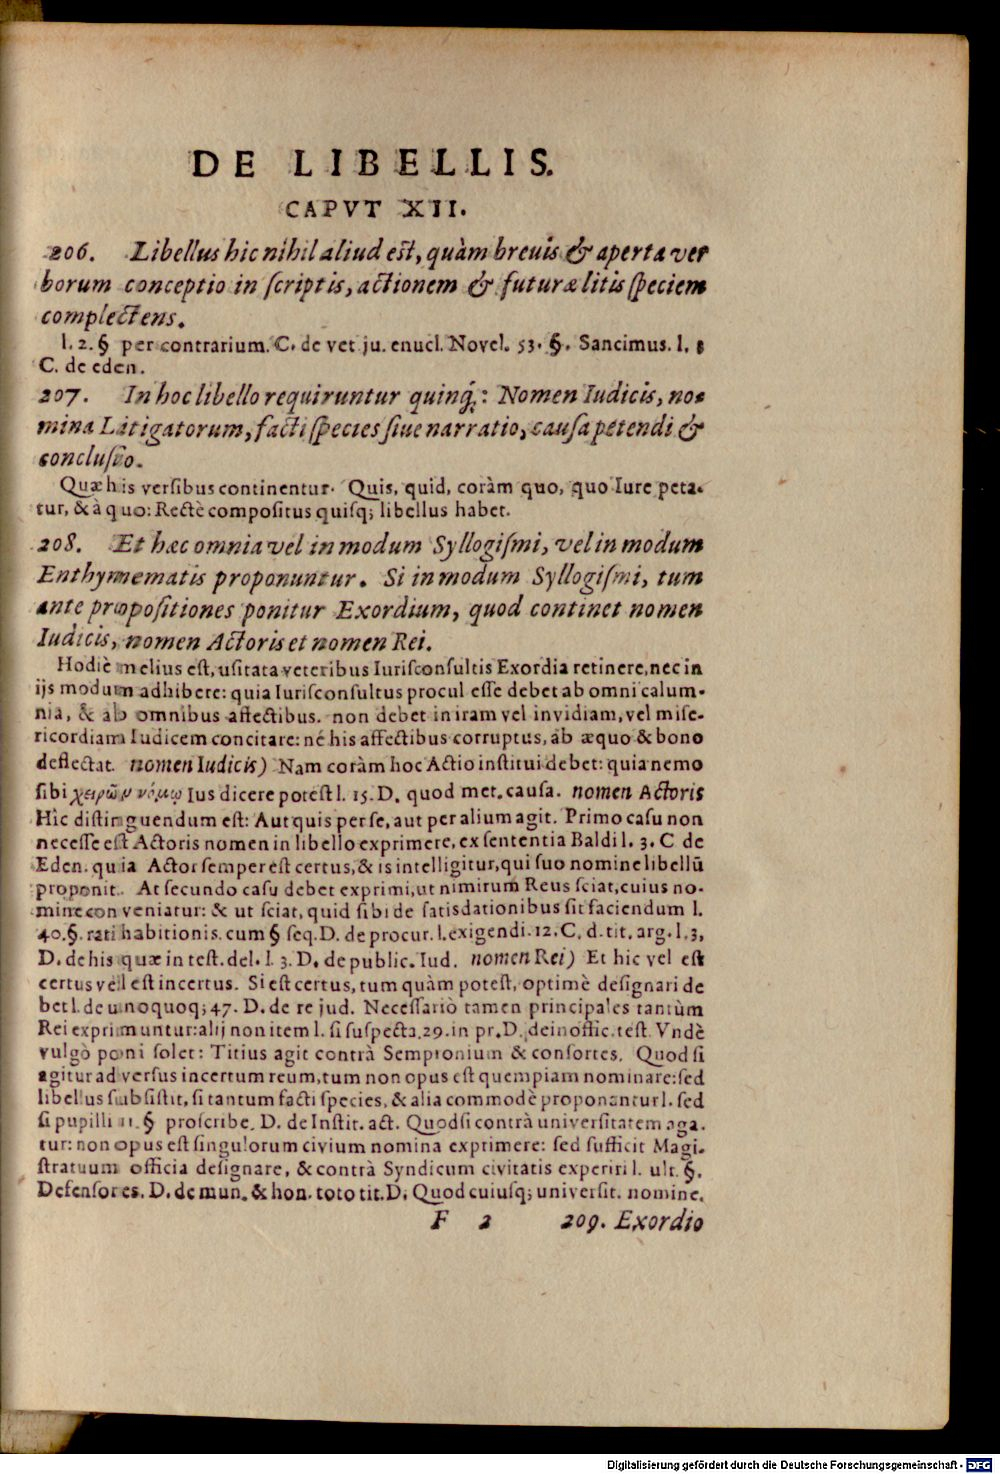 DE LIBELLIS.
CAPVT XII.
206. Libellus hic nihil aliud est, quàm breuis & aperta ver
borum conceptio in scriptis, actionem & futuræ litis speciem
complectens.
l. 2. § per contrarium. C. de vet ju. enucl. Novel. 53. §. Sancimus. l. 8
C. de eden.
207. In hoc libello requiruntur quinq;: Nomen Iudicis, no-
mina Litigatorum, facti species siue narratio, causa petendi &
conclusio.
Quæ his versibus continentur. Quis, quid, coràm quo, quo Iure peta-
tur, & à quo: Rectè compositus quisq; libellus habet.
208. Et hæc omnia vel in modum Syllogismi, vel in modum
Enthymematis proponuntur. Si in modum Syllogismi, tum
ante propositiones ponitur Exordium, quod continet nomen
Iudicis, nomen Actoris et nomen Rei.
Hodiè melius est, usitata veteribus Iurisconsultis Exordia retinere, nec in
ijs modum adhibere: quia Iurisconsultus procul esse debet ab omni calum-
nia, & ab omnibus affectibus. non debet in iram vel invidiam, vel mise-
ricordiam Iudicem concitare: né his affectibus corruptus, ab æquo & bono
deflectat. nomen Iudicis) Nam coràm hoc Actio institui debet: quia nemo
sibi χειρῶν νόμῳ Ius dicere potest l. 15. D. quod met. causa. nomen Actoris
Hic distinguendum est: Aut quis per se, aut per alium agit. Primo casu non
necesse est Actoris nomen in libello exprimere, ex sententia Baldi l. 3. C de
Eden. quia Actor semper est certus, & is intelligitur, qui suo nomine libellū
proponit. At secundo casu debet exprimi, ut nimirum Reus sciat, cuius no-
mine conveniatur: & ut sciat, quid sibi de satisdationibus sit faciendum l.
40. §. rati habitionis. cum § seq. D. de procur. l. exigendi. 12. C. d. tit. arg. l. 3,
D. de his quæ in test. del. l. 3. D. de public. Iud. nomen Rei) Et hic vel est
certus vel est incertus. Si est certus, tum quàm potest, optimè designari de
bet l. de unoquoq; 47. D. de re jud. Necessariò tamen principales tantùm
Rei exprimuntur: alij non item l. si suspecta. 29. in pr. D. de inoffic. test. Vndè
vulgò poni solet: Titius agit contrà Sempronium & consortes. Quod si
agitur adversus incertum reum, tum non opus est quempiam nominare: sed
libellus subsistit, si tantum facti species, & alia commodè proponantur l. sed
si pupilli 11. § proscribe. D. de Instit. act. Quodsi contrà universitatem aga-
tur: non opus est singulorum civium nomina exprimere: sed sufficit Magi-
stratuum officia designare, & contrà Syndicum civitatis experiri l. ult. §.
Defensores. D. de mun. & hon. toto tit. D. Quod cuiusq; universit. nomine.
F 2 209. Exordio
Digitalisierung gefördert durch die Deutsche Forschungsgemeinschaft - DFG